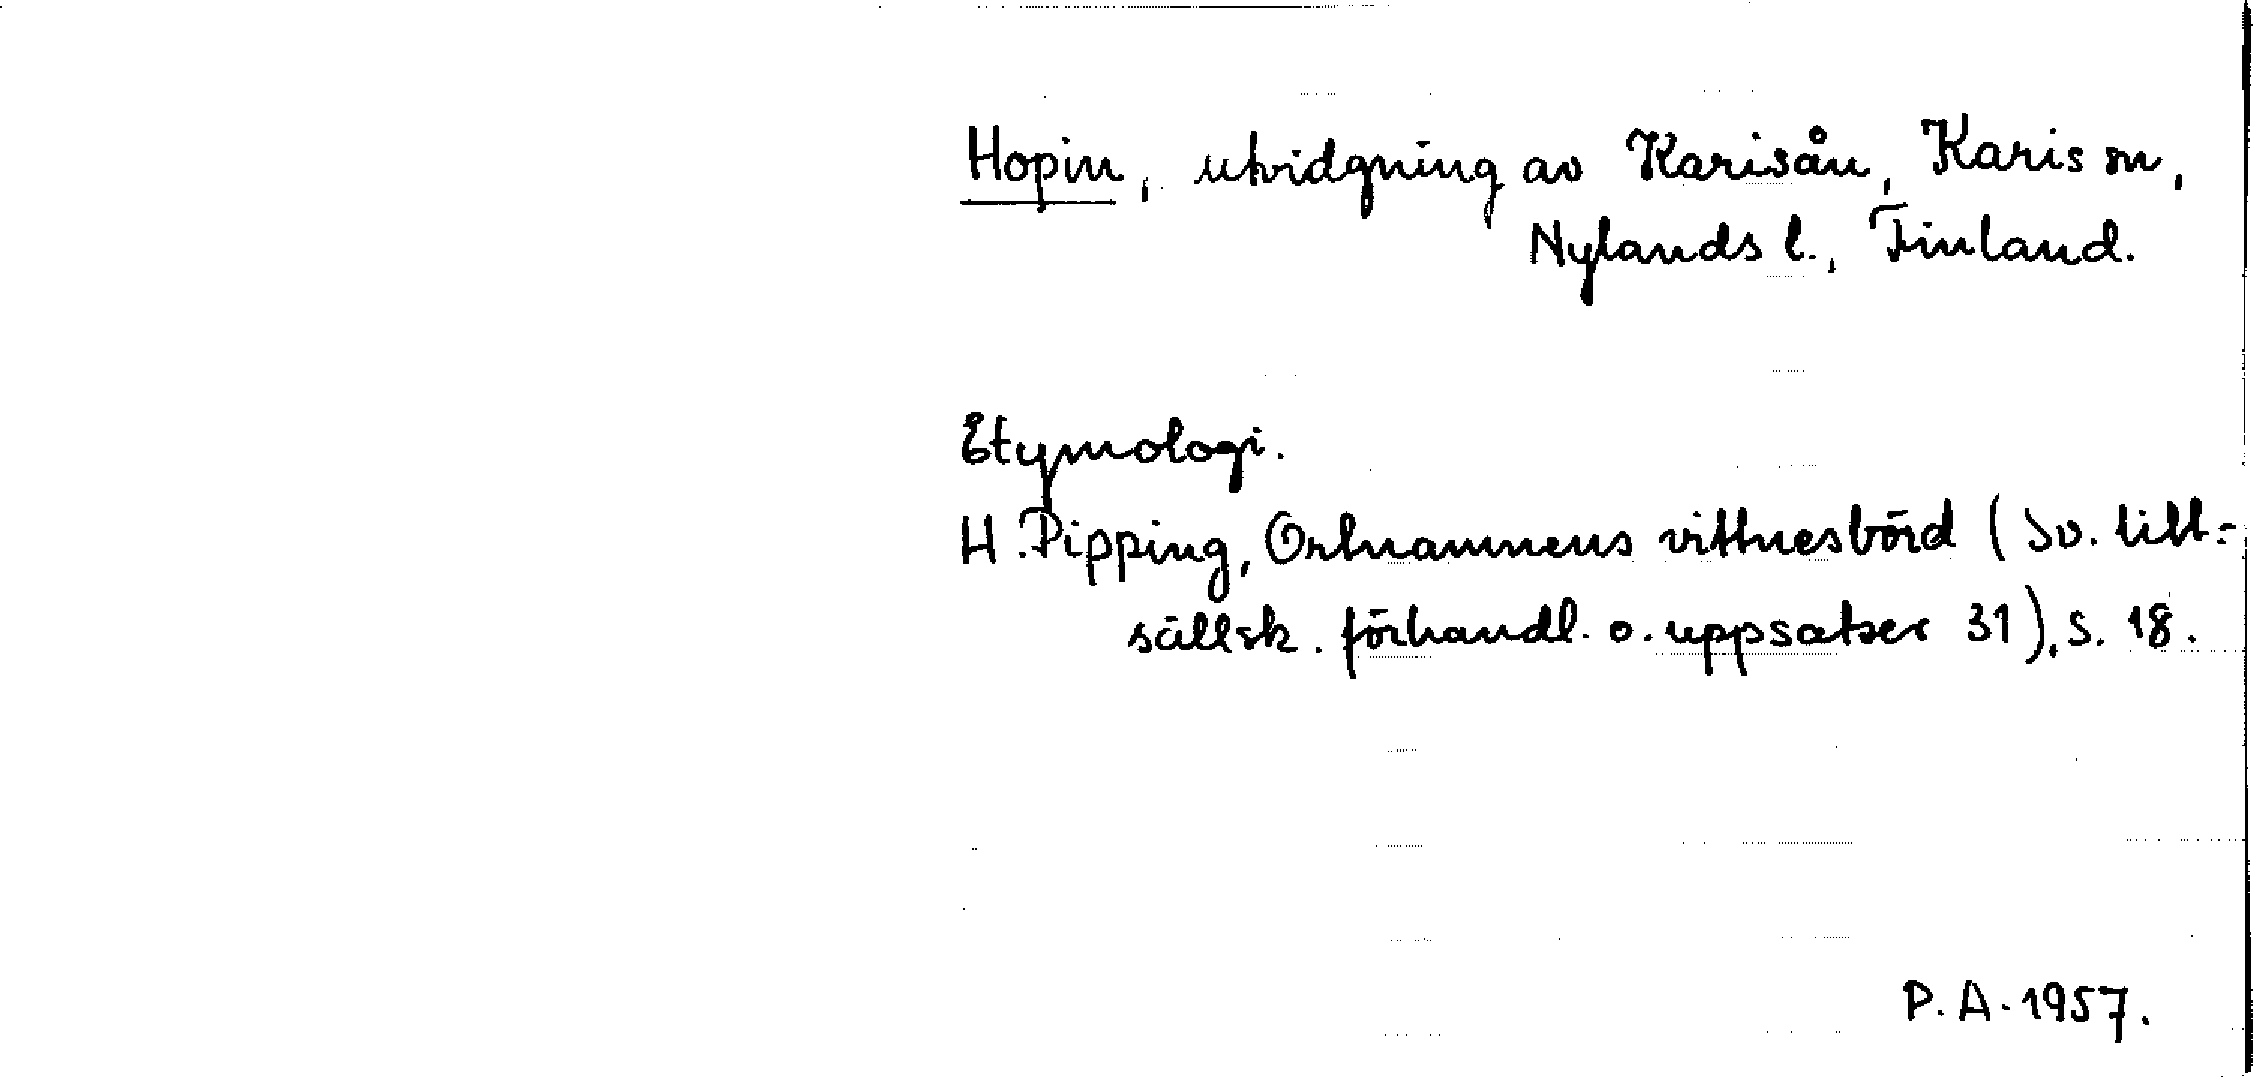 Hopin, utvidgning av Karisån, Karis sn,
Nylands l., Finland.
Etymologi.
H. Pipping, Ortnamnens vittnesbörd (Sv. litt.-
sällsk. förhandl. o. uppsatser 31), s. 18.
P. A. 1957.